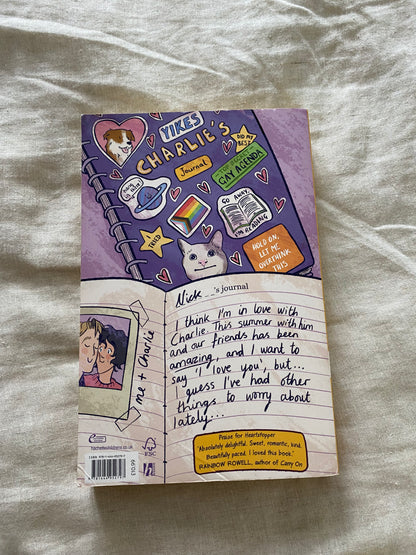 YIKES
CHARLIE'S
Journal
DID MY
BEST
GAY AGENDA
GO AWAY,
I'M READING
I
TRIED
HOLD ON,
LET ME
OVERTHINK
THIS
Nick __'s journal
I think I'm in love with
Charlie. This summer with him
and our friends has been
amazing, and I want to
say 'I love you', but...
I guess I've had other
things to worry about
lately...
me + Charlie
Praise for Heartstopper
"Absolutely delightful. Sweet, romantic, kind.
Beautifully paced. I loved this book."
RAINBOW ROWELL, author of Carry On
hachettechildrens.co.uk
FSC
£10.99